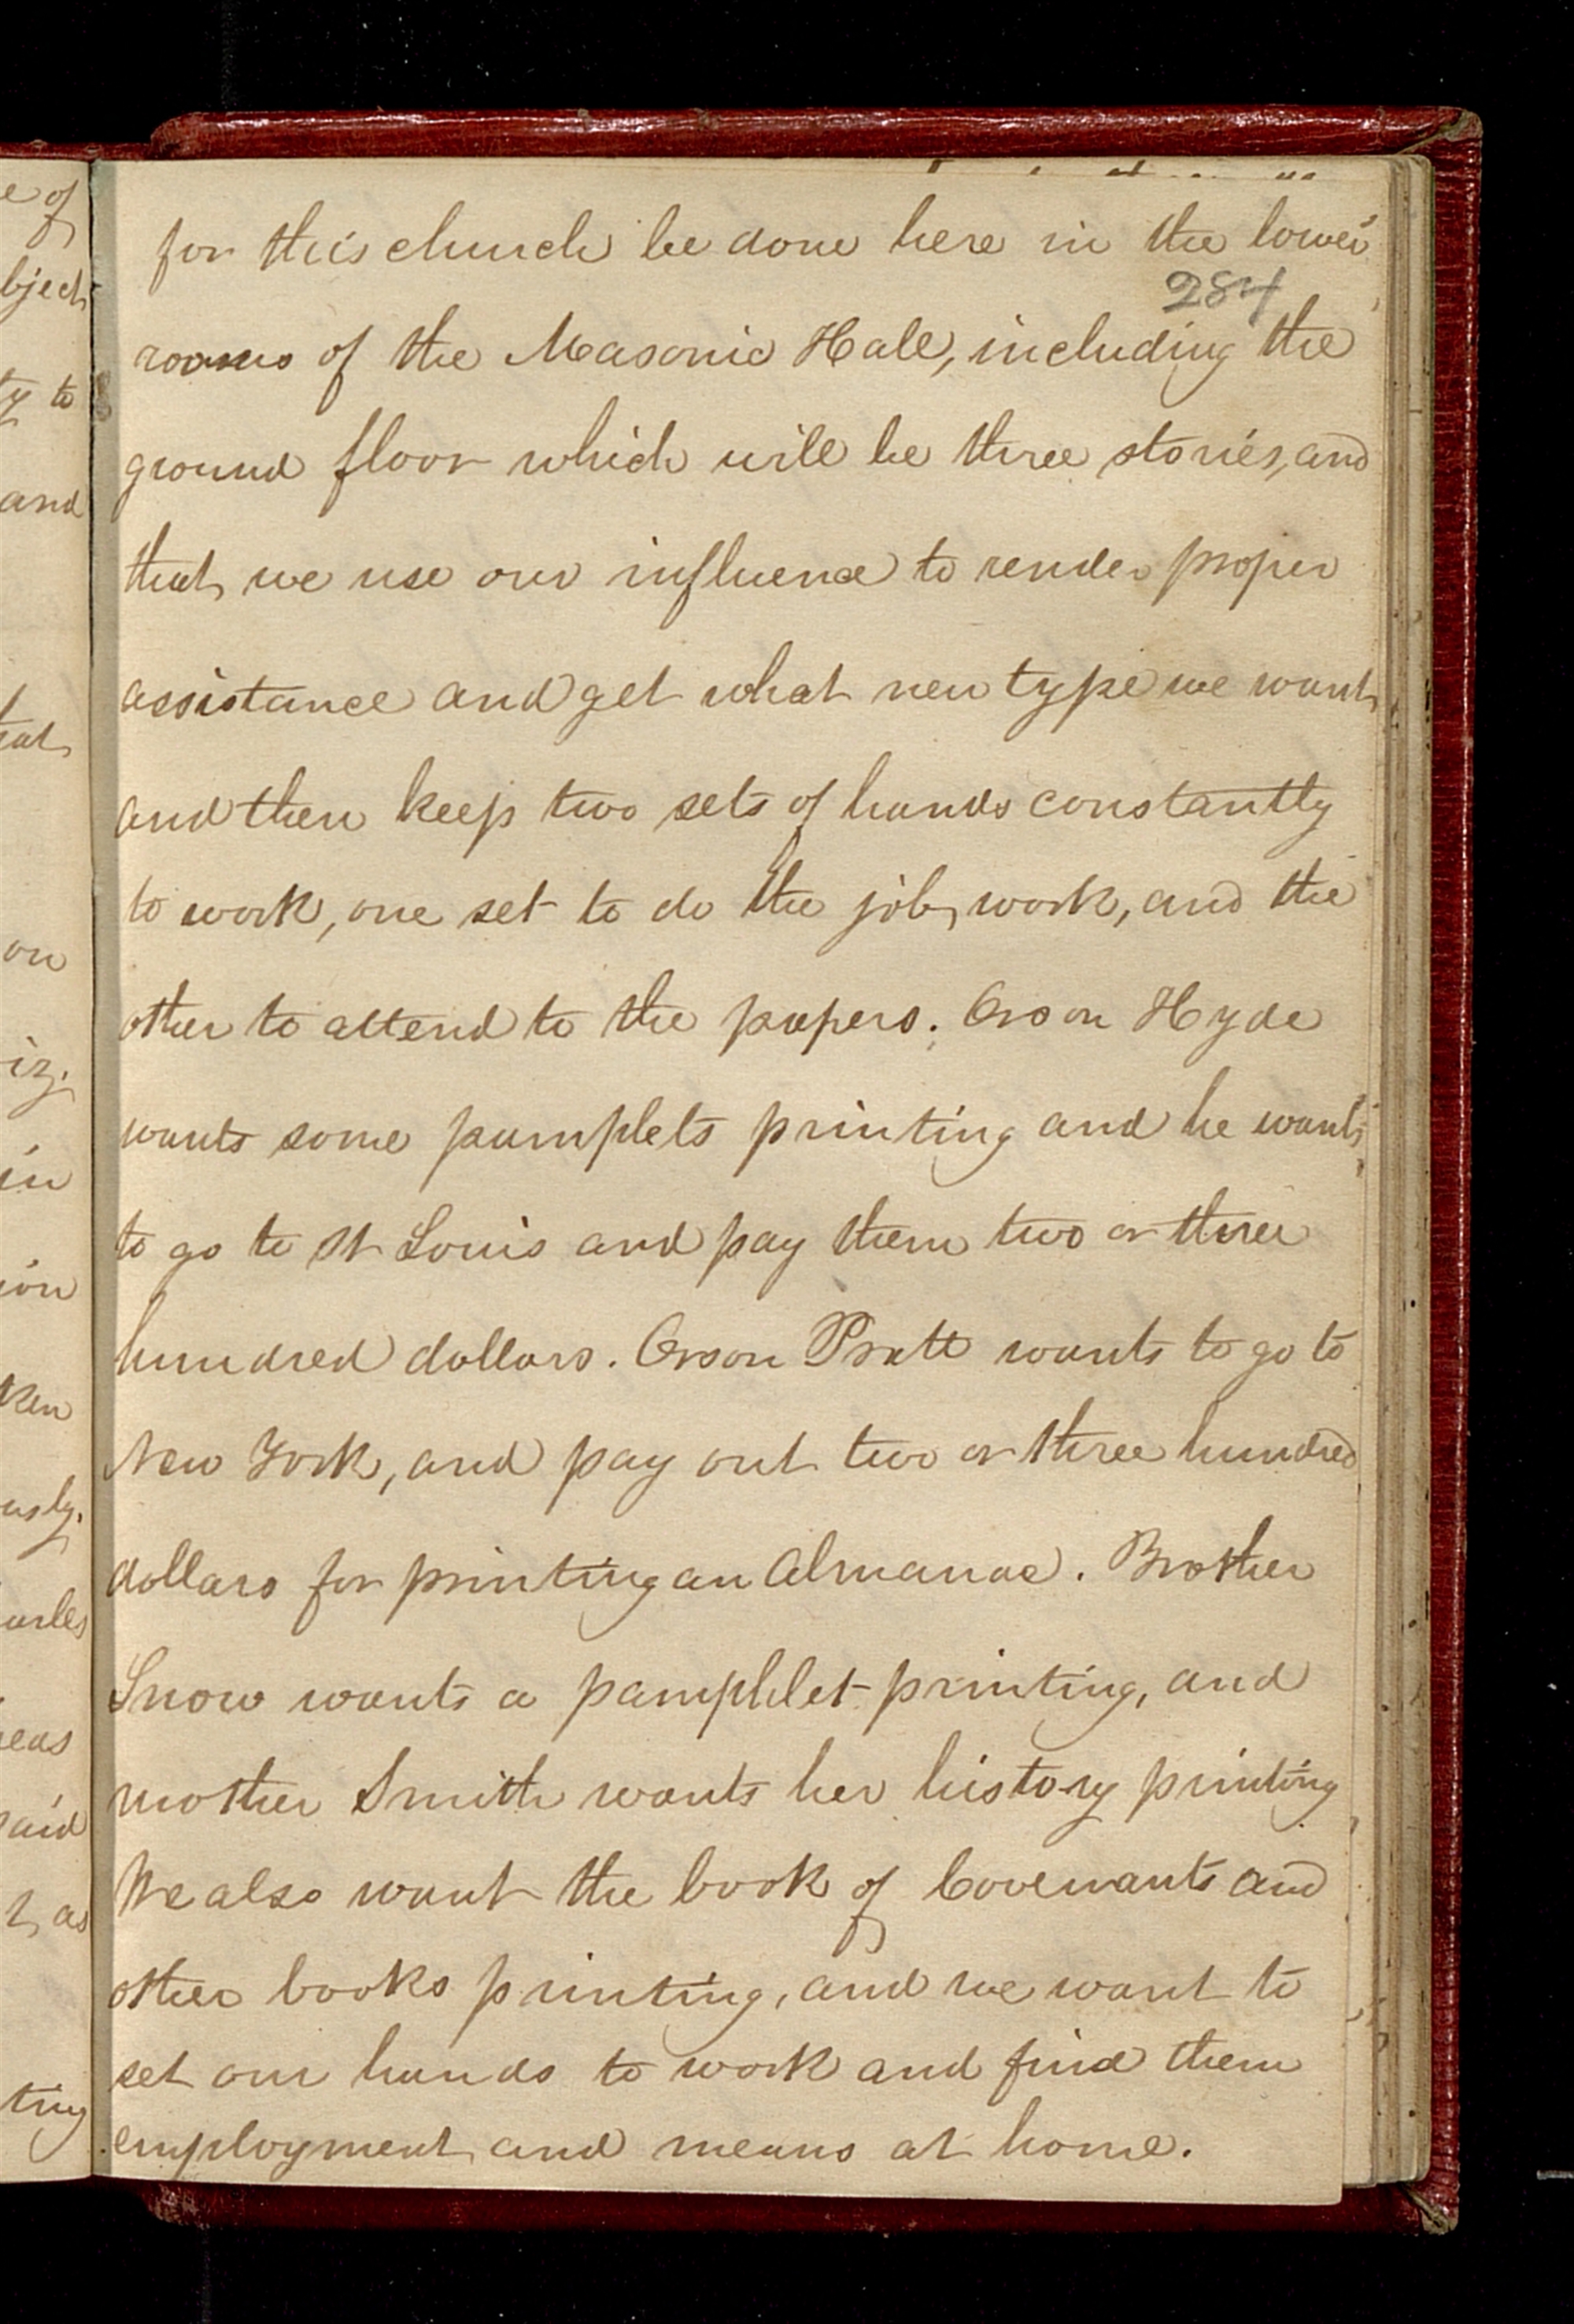 for this church be done here in the lower
284
rooms of the Masonic Hall, including the
ground floor which will be three stories, and
that we use our influence to render proper
assistance and get what new type we want
and then keep two sets of hands constantly
to work, one set to do the job work, and the
other to attend to the papers. Orson Hyde
wants some pamplets printing and he wants
to go to St Louis and pay them two or three
hundred dollars. Orson Pratt wants to go to
New York, and pay out two or three hundred
dollars for printing an Almanac. Brother
Snow wants a pamphlet printing, and
mother Smith wants her history printing
We also want the book of Covenants and
other books printing, and we want to
set our hands to work and find them
employment and means at home.
e of
bject
ty to
and
on
iz.
in
ion
ken
usly.
arles
eas
aid
t, as
ting